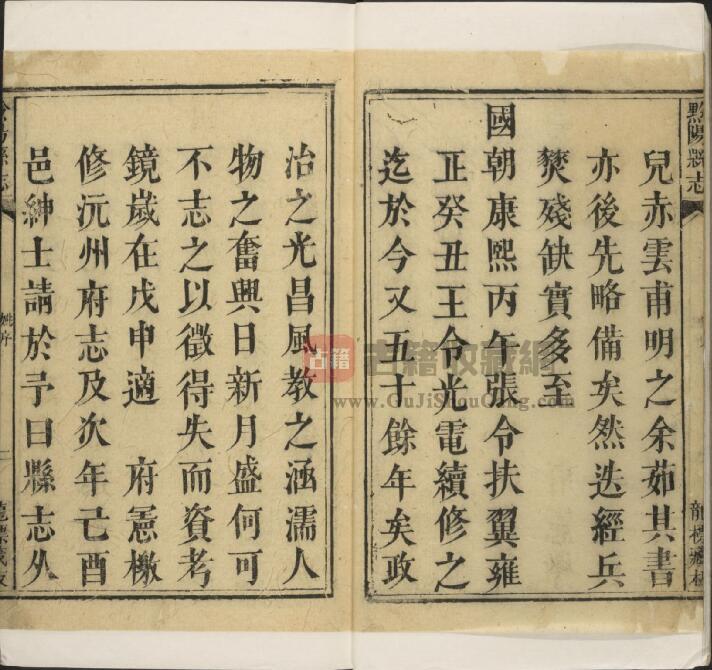 黔陽縣志
兒赤雲甫明之余茹其書
亦後先略備矣然迭經兵
燹殘缺實多至
國朝康熙丙午張令扶翼雍
正癸丑王令光電續修之
迄於今又五十餘年矣政
龍標藏板
治之光昌風教之涵濡人
物之奮興日新月盛何可
不志之以徵得失而資考
鏡歲在戊申適 府憲檄
修沅州府志及次年己酉
邑紳士請於予曰縣志久
姚序
古籍收藏網
www.GuJiShouCang.com
古籍